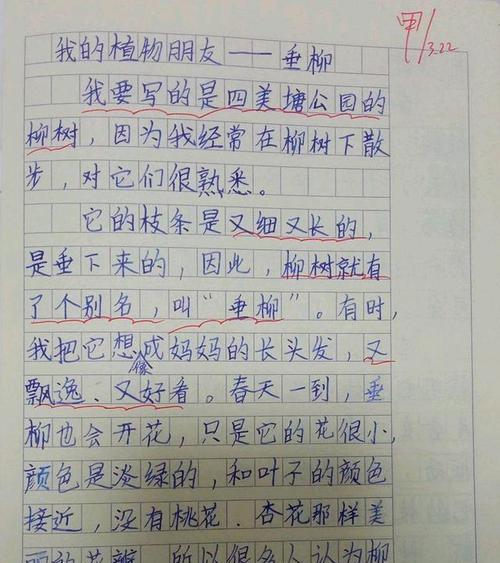 甲 3.22
我的植物朋友——垂柳
我要写的是四美塘公园的
柳树，因为我经常在柳树下散
步，对它们很熟悉。
它的枝条是又细又长的，
是垂下来的，因此，柳树就有
了个别名，叫“垂柳”。有时，
我把它想像成妈妈的长头发，又
飘逸、又好看。春天一到，垂
柳也会开花，只是它的花很小，
颜色是淡绿的，和叶子的颜色
接近，没有桃花、杏花那样美
丽的花瓣，所以很多人认为柳